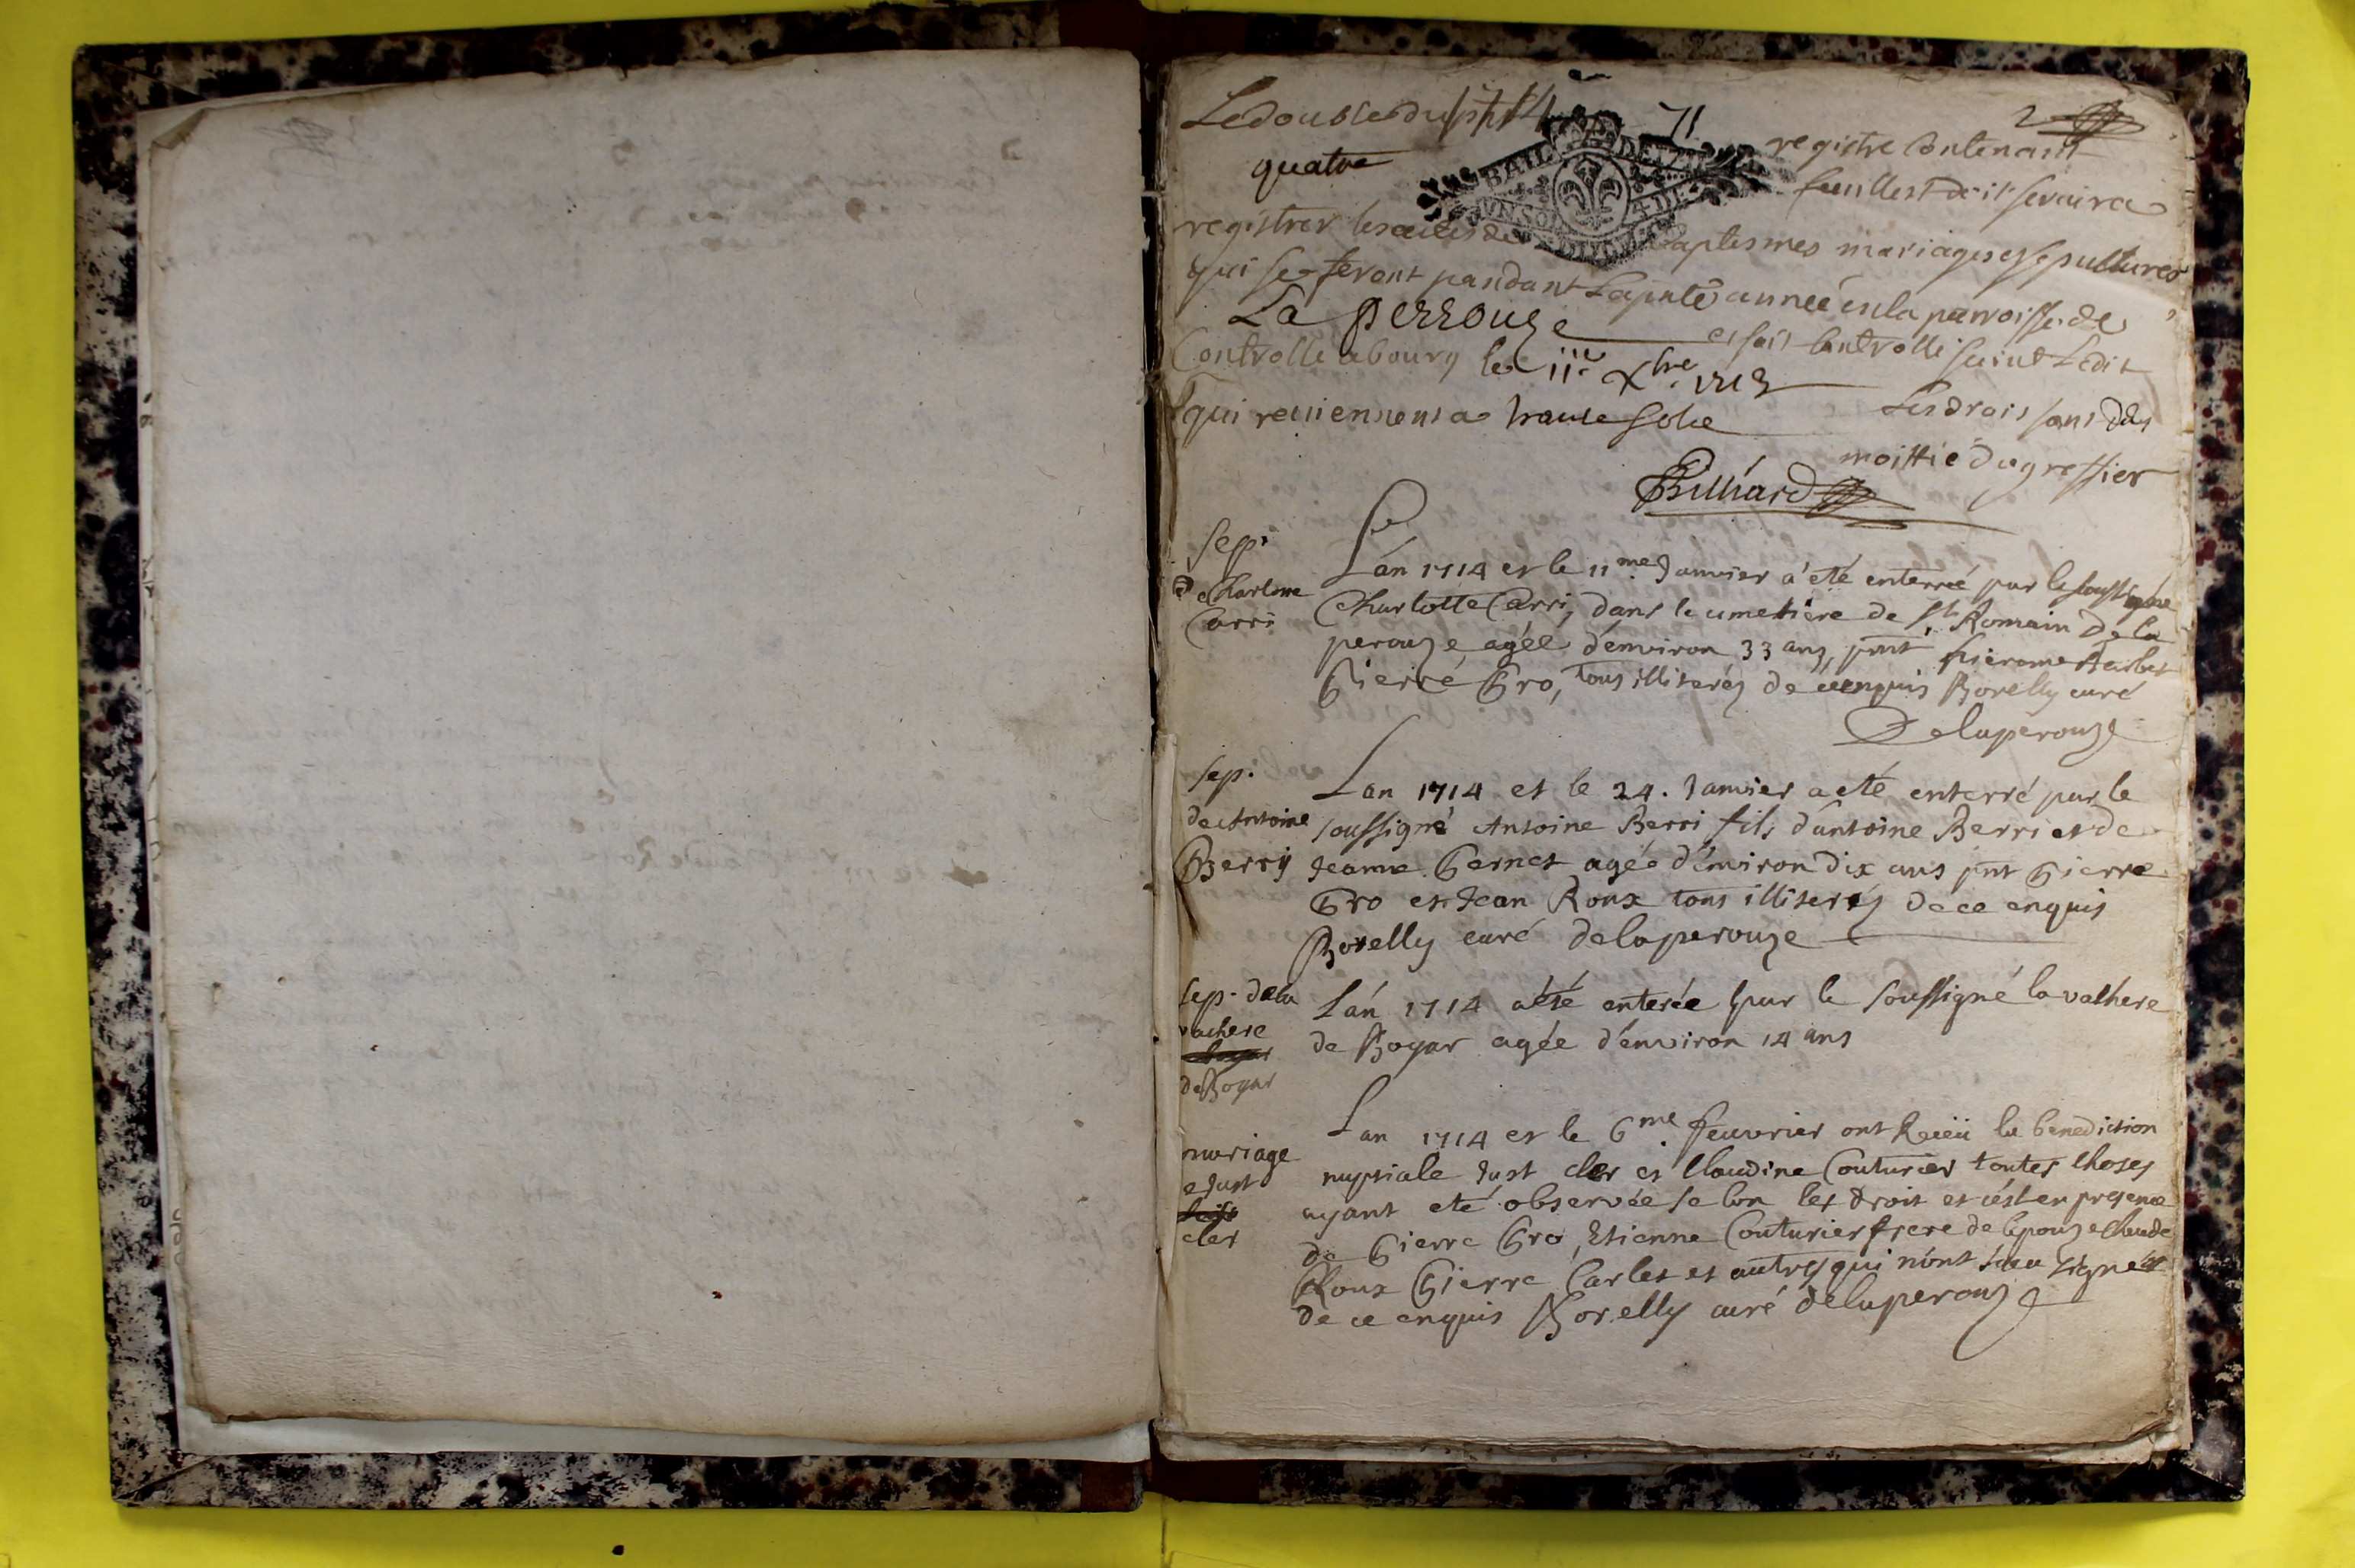 2
Le double du pnt 71 registre Contenant
quatre feuillest doit servir a
BAIL DE
registrer les actes de baptesmes mariages et sepultures
qui se feront pandant La pnte année en la parroisse de
La perrouze et fait Controllé suivt Ledit
Controllé a bourg le iie Xbre 1713
Les drois sans des
qui reviennent a trante solz
moittié du greffier
Billiard
sep.
de Charlotte
Carri
Lán 1714 et le 11me Janvier a'eté enterreé par le soussigné
Charlotte Carri, dans le cimetiere de St Romain De la
perouze ageé d'environ 33 ans, pnt
Pierre Gro, tous illiterés de ce enquis Borelly curé
Delaperouze
sep.
de Antoine
Berry
Lan 1714 et le 24. Janvier a eté enterré par le
soussigné Antoine Berri fils d'antoine Berri et de
Jeanne Pernet agée d'environ dix ans pnt Pierre
Gro et Jean Roux tous illiterés de ce enquis
Borelly curé delaperouze
sep. de la
vachere
de Boyar
Lán 1714 a'eté enterée par le soussigné la vachere
de Boyar agée d'environ 14 ans
mariage
e Just
cler
Lan 1714 et le 6me feuvrier ont Receü la benediction
nuptiale Just cler et Claudine Couturier toutes choses
ayant eté observée selon les droit et c'est en presence
de Pierre Gro, Etienne Couturier frere de lepouze Claude
Roux Pierre Carlet et autres qui n'ont sceu signér
de ce enquis Borelly curé delaperouze